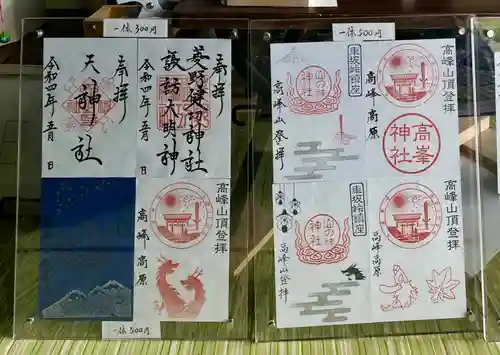 一体300円
奉拝
菱野健功神社
諏訪大明神
令和四年五月 日
奉拝
天神社
令和四年五月 日
高峰山頂登拝
高峰高原
一体500円
一体500円
高峰山頂登拝
高峯神社
高峰高原
車坂峠鎮座
山の神神社
高峰山登拝
高峰山頂登拝
高峰高原
車坂峠鎮座
山の神神社
高峰山登拝